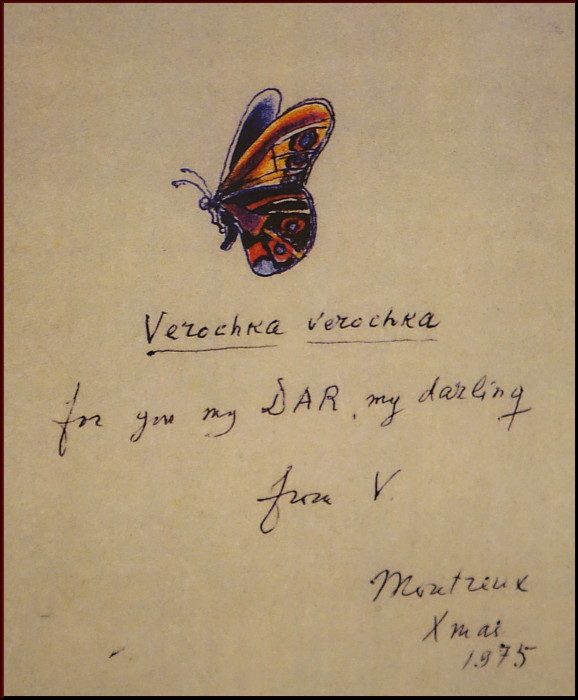 Verochka verochka
for you my DAR, my darling
from V.
Montreux
Xmas
1975